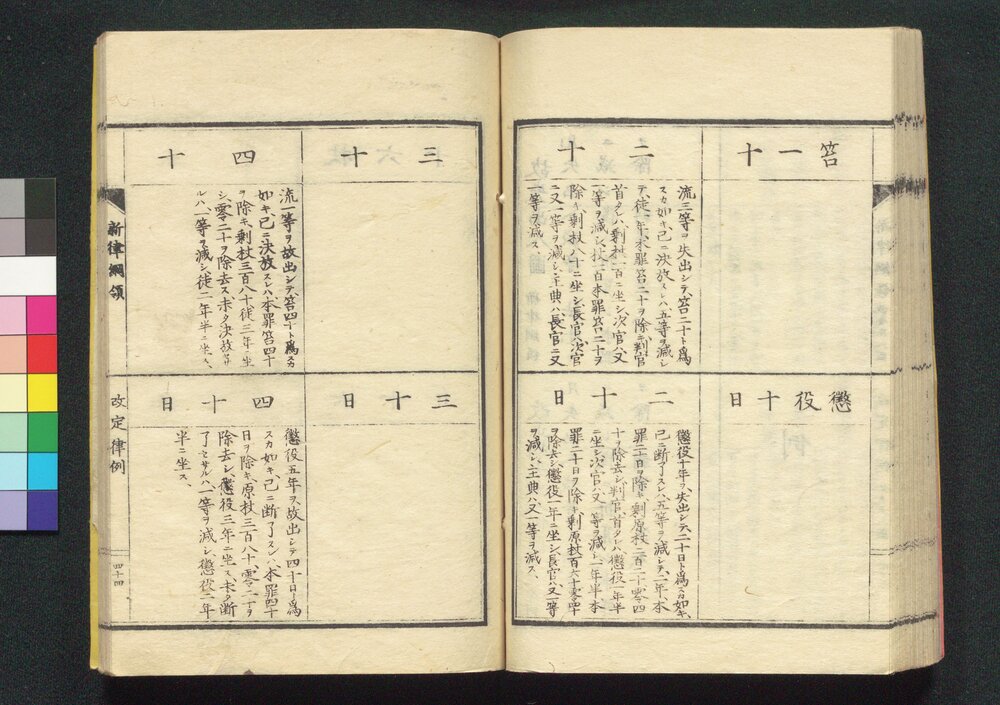 笞一十
二十
流三等ヲ失出シテ笞二十ト爲
スカ如キ已ニ決放スレハ五等ヲ減シ
テ徒一年、本罪笞二十ヲ除キ判官
首タレハ剰杖一百ニ坐シ次官ハ又
一等ヲ減シ杖一百本罪笞二十ヲ
除キ剰杖八十ニ坐シ長官ハ次官
ニ又一等ヲ減シ主典ハ長官ニ又
一等ヲ減ス
懲役十日
二十日
懲役十年ヲ失出シテ二十日ト爲スカ如キ
已ニ断了スレハ五等ヲ減シテ二年、本
罪二十日ヲ除キ剰原杖二百二十零四
十ヲ除去シ判官首タレハ懲役一年半
ニ坐シ次官ハ又一等ヲ減シ一年半本
罪二十日ヲ除キ剰原杖百六十零四十
ヲ除去シ懲役一年ニ坐シ長官ハ又一等
ヲ減シ主典ハ又一等ヲ減ス、
三十
四十
流一等ヲ故出シテ笞四十ト爲スカ
如キ已ニ決放スレハ本罪笞四十
ヲ除キ剰杖三百八十徒三年ニ坐
シ零二十ヲ除去ス未タ決放セサ
ルハ一等ヲ減シ徒二年半ニ坐ス、
三十日
四十日
懲役五年ヲ故出シテ四十日ト爲
スカ如キ已ニ断了スレハ本罪四十
日ヲ除キ原杖三百八十、零二十ヲ
除去シ懲役三年ニ坐ス、未タ断
了セサルハ一等ヲ減シ懲役二年
半ニ坐ス、
新律綱領
改定律例
四十四